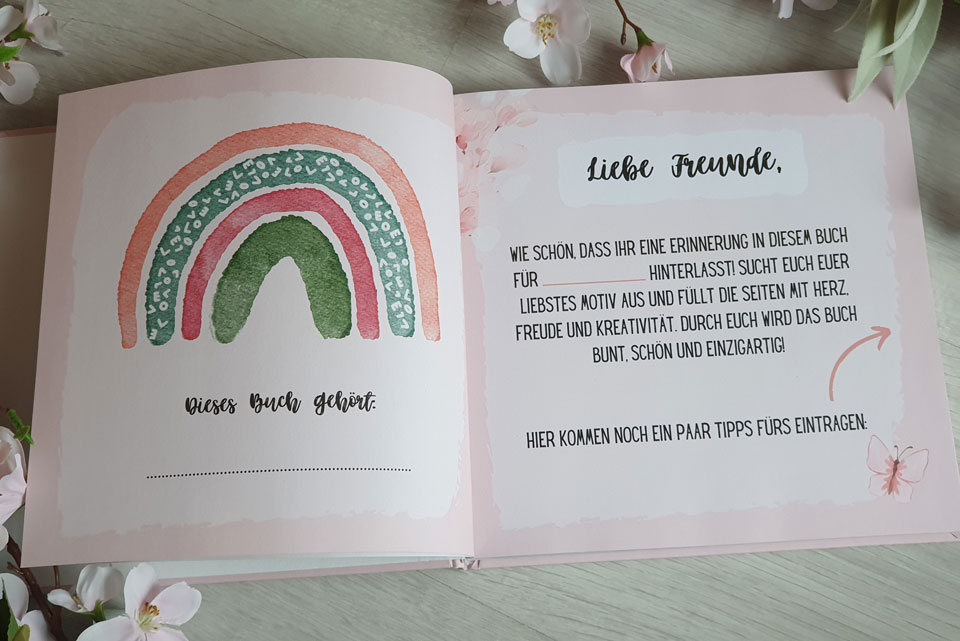 Dieses Buch gehört:
Liebe Freunde,
WIE SCHÖN, DASS IHR EINE ERINNERUNG IN DIESEM BUCH
FÜR HINTERLASST! SUCHT EUCH EUER
LIEBSTES MOTIV AUS UND FÜLLT DIE SEITEN MIT HERZ,
FREUDE UND KREATIVITÄT. DURCH EUCH WIRD DAS BUCH
BUNT, SCHÖN UND EINZIGARTIG!
HIER KOMMEN NOCH EIN PAAR TIPPS FÜRS EINTRAGEN: